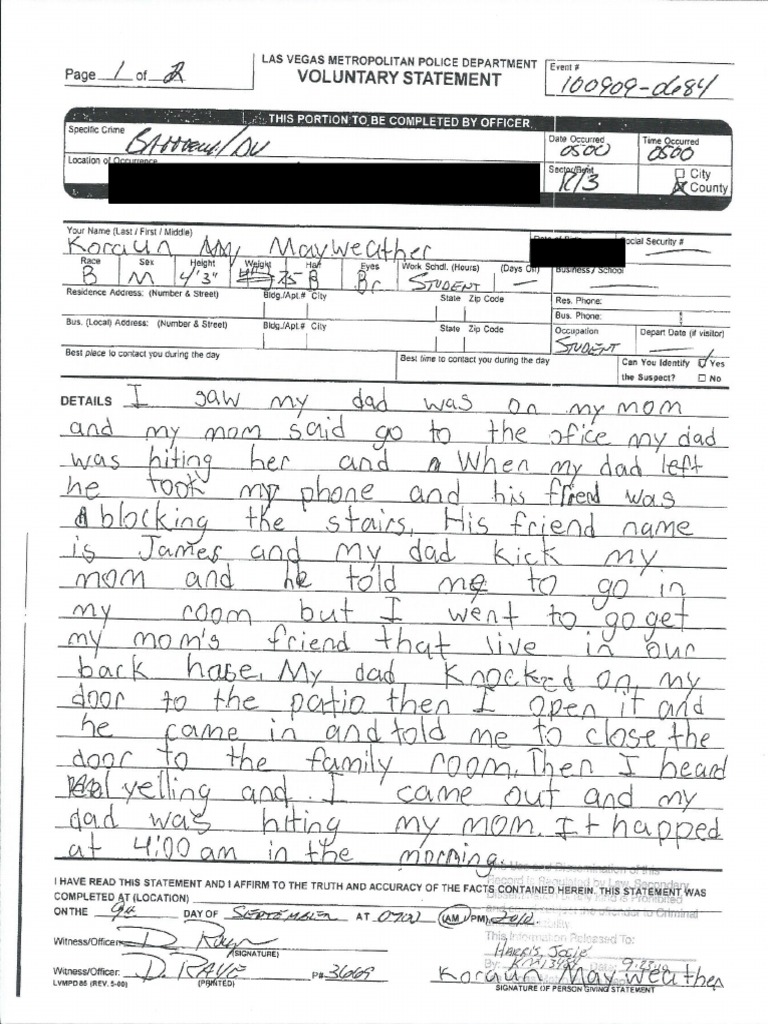 Page 1 of 2
LAS VEGAS METROPOLITAN POLICE DEPARTMENT
VOLUNTARY STATEMENT
Event #
100909-0684
THIS PORTION TO BE COMPLETED BY OFFICER
Specific Crime
Battery/DV
Date Occurred
0500
Time Occurred
0500
Location of Occurrence
Sector/Beat
R/3
City
County
Your Name (Last / First / Middle)
Koraun Mayweather
Date of Birth
Social Security #
Race
B
Sex
M
Height
4'3"
Weight
75
Hair
B
Eyes
Br
Work Schdl. (Hours)
STUDENT
(Days Off)
Business / School
Residence Address: (Number & Street) Bldg./Apt.# City State Zip Code
Res. Phone:
Bus. (Local) Address: (Number & Street) Bldg./Apt.# City State Zip Code
Bus. Phone:
Occupation
STUDENT
Depart Date (if visitor)
Best place to contact you during the day
Best time to contact you during the day
Can You Identify Yes
the Suspect? No
DETAILS I saw my dad was on my mom
and my mom said go to the ofice my dad
was hiting her and When my dad left
he took my phone and his friend was
blocking the stairs. His friend name
is James and my dad kick my
mom and he told me to go in
my room but I went to go get
my mom's friend that live in our
back hase. My dad knocked on my
door to the patio then I open it and
he came in and told me to close the
door to the family room. Then I heard
yelling and I came out and my
dad was hiting my mom. It happed
at 4:00 am in the morning.
I HAVE READ THIS STATEMENT AND I AFFIRM TO THE TRUTH AND ACCURACY OF THE FACTS CONTAINED HEREIN. THIS STATEMENT WAS
COMPLETED AT (LOCATION)
ON THE 9th DAY OF SEPTEMBER AT 0700 (AM / PM), 2010.
Witness/Officer:
(SIGNATURE)
This Information Released To:
HARRIS, Josie
Witness/Officer: D. RAYE
(PRINTED)
P# 3669
Koraun Mayweather
SIGNATURE OF PERSON GIVING STATEMENT
LVMPD 85 (REV. 5-00)